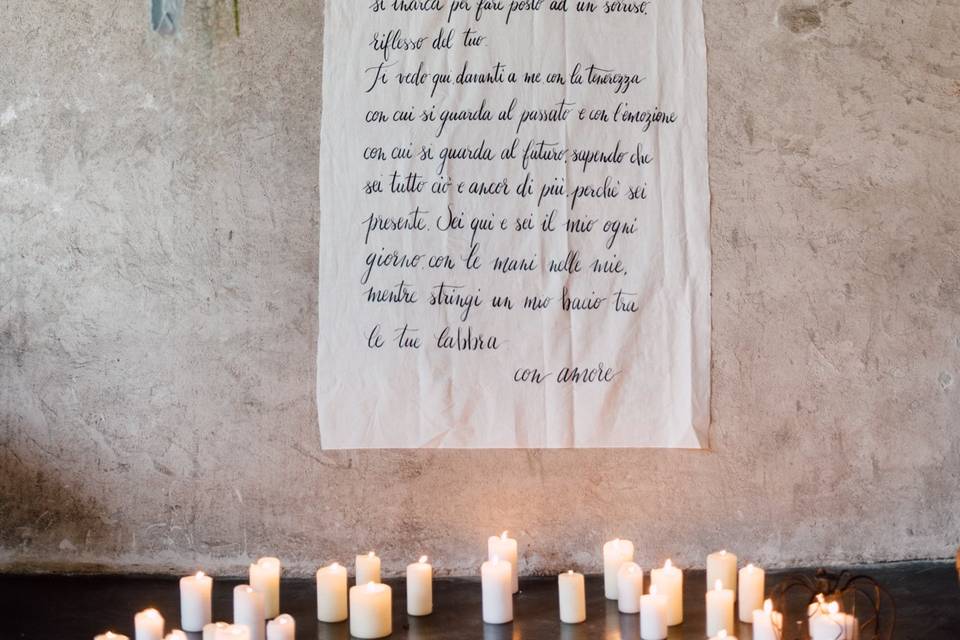 si inarca per fare posto ad un sorriso,
riflesso del tuo.
Ti vedo qui davanti a me con la tenerezza
con cui si guarda al passato e con l'emozione
con cui si guarda al futuro, sapendo che
sei tutto ciò e ancor di più, perché sei
presente. Sei qui e sei il mio ogni
giorno, con le mani nelle mie,
mentre stringi un mio bacio tra
le tue labbra
con amore